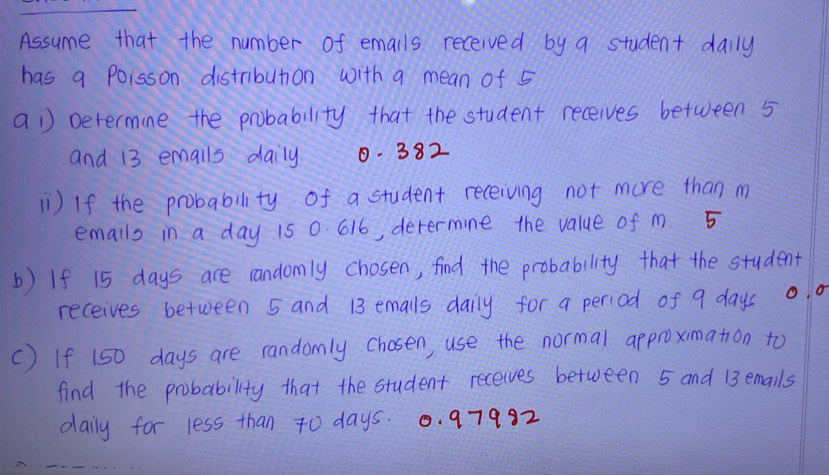 Assume that the number of emails received by a student daily
has a Poisson distribution with a mean of 5
a i) Determine the probability that the student receives between 5
and 13 emails daily 0.382
ii) If the probability of a student receiving not more than m
emails in a day is 0.616, determine the value of m 5
b) If 15 days are randomly chosen, find the probability that the student
receives between 5 and 13 emails daily for a period of 9 days 0.0
c) If 150 days are randomly chosen, use the normal approximation to
find the probability that the student receives between 5 and 13 emails
daily for less than 70 days. 0.97982